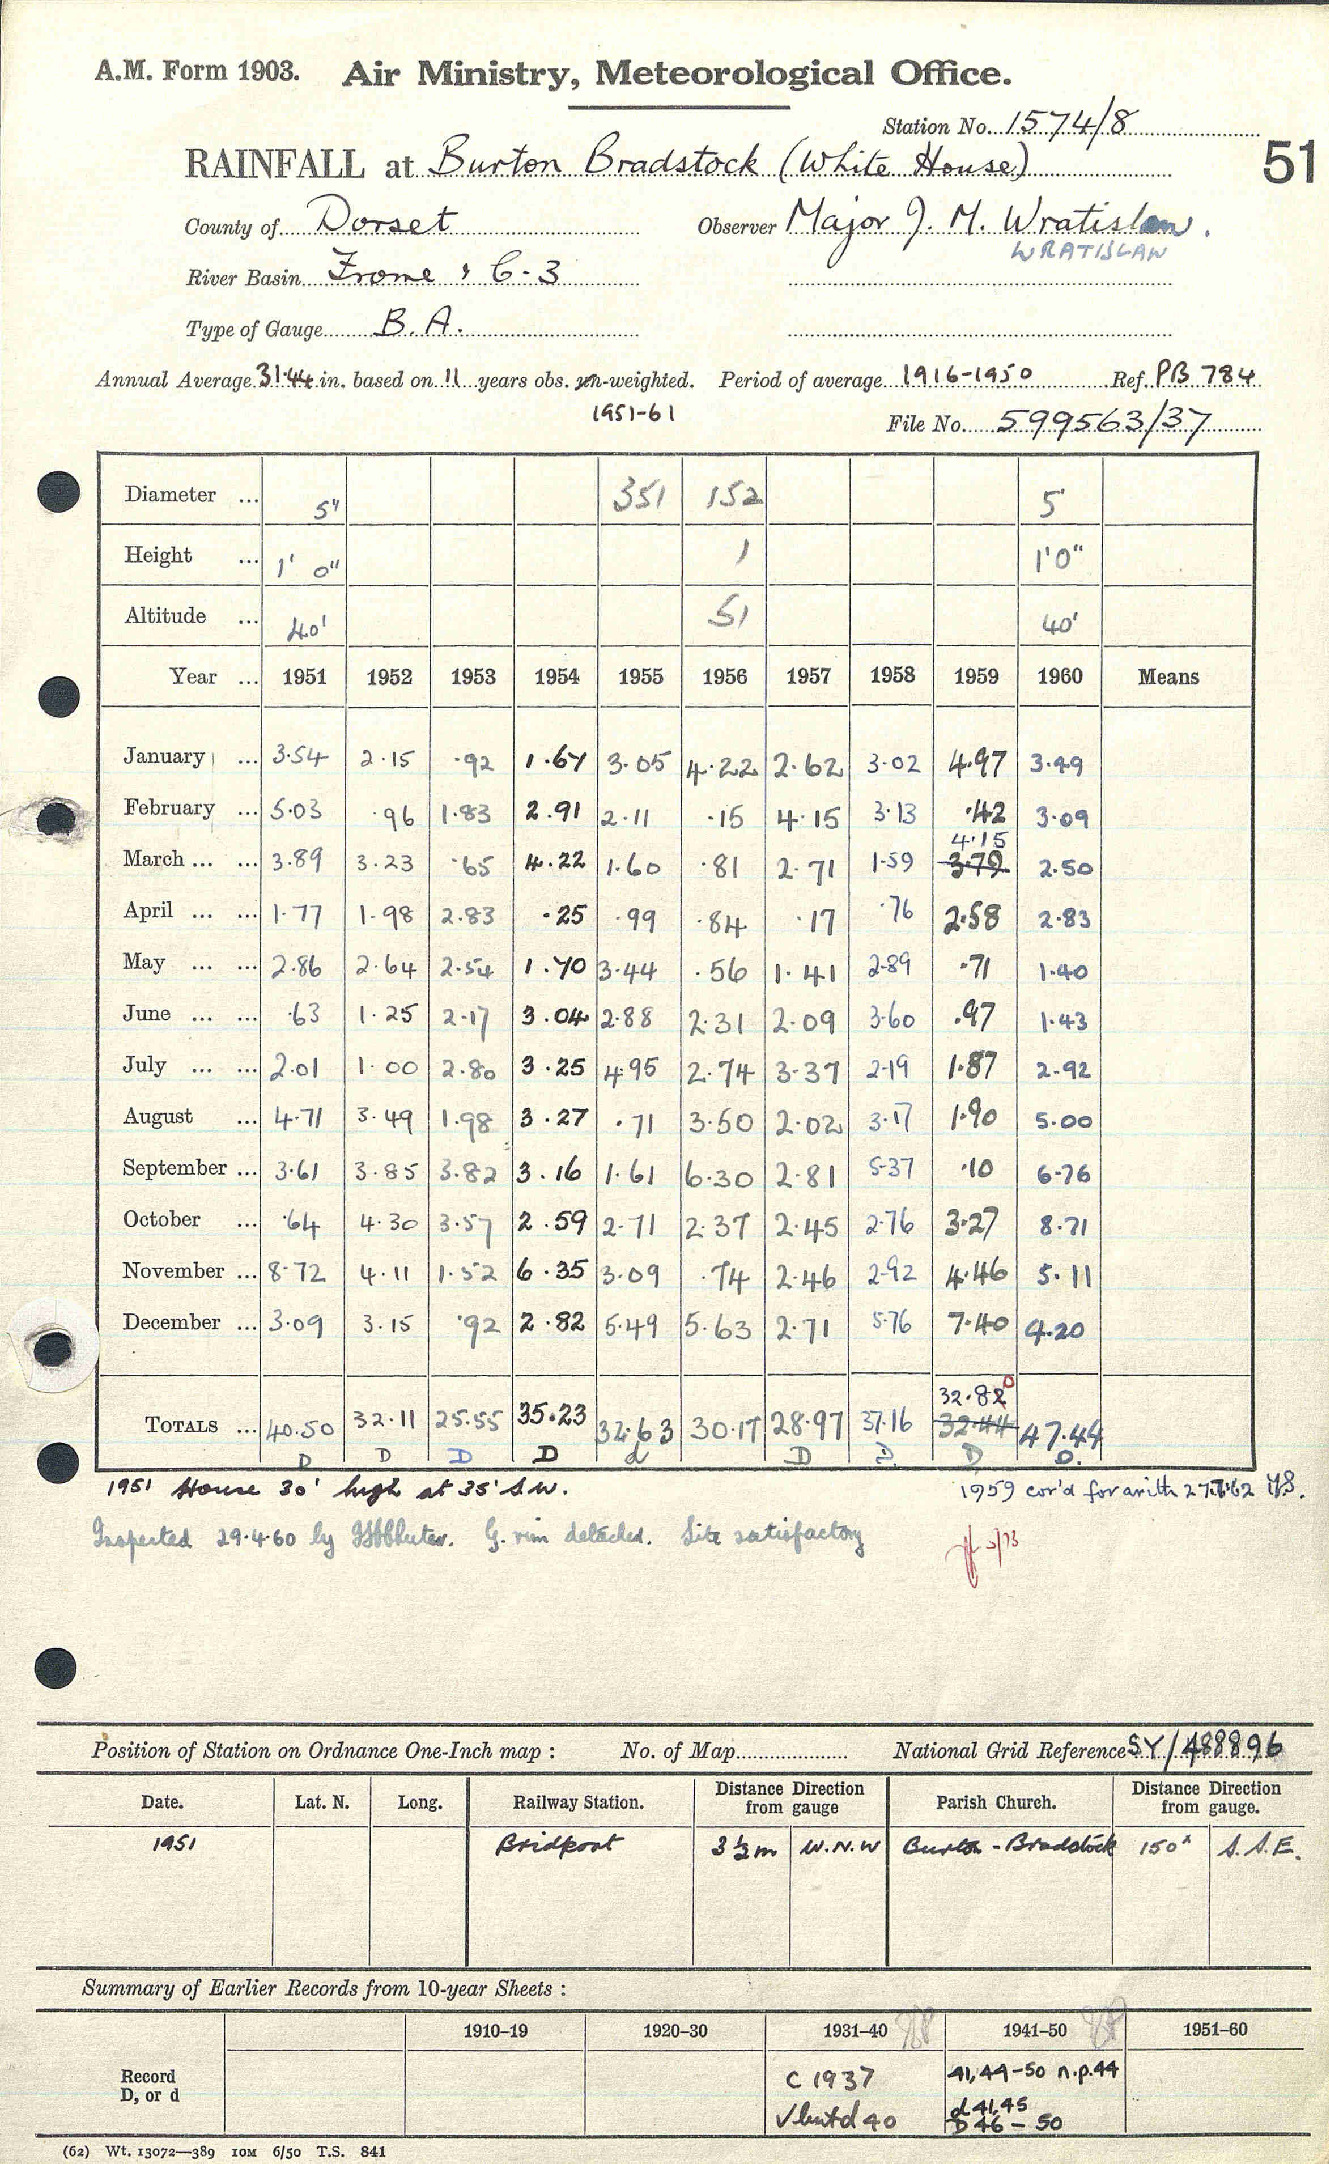 A.M. Form 1903. Air Ministry, Meteorological Office.
Station No. 1574/8
RAINFALL at Burton Bradstock (White House) 51
County of Dorset Observer Major J. M. Wratislaw.
WRATISLAW
River Basin Frome & C-3
Type of Gauge B.A.
Annual Average 31.44 in. based on 11 years obs. un-weighted. Period of average 1916-1950 Ref. PB 784
1951-61
File No. 599563/37
Diameter ... 5" 351 152 5
Height ... 1' 0" 1 1'0"
Altitude ... 40' 51 40'
Year ... 1951 1952 1953 1954 1955 1956 1957 1958 1959 1960 Means
January ... 3.54 2.15 .92 1.67 3.05 4.22 2.62 3.02 4.97 3.49
February ... 5.03 .96 1.83 2.91 2.11 .15 4.15 3.13 .42 3.09
4.15
March ... ... 3.89 3.23 .65 4.22 1.60 .81 2.71 1.59 3.79 2.50
April ... ... 1.77 1.98 2.83 .25 .99 .84 .17 .76 2.58 2.83
May ... ... 2.86 2.64 2.54 1.70 3.44 .56 1.41 2.89 .71 1.40
June ... ... .63 1.25 2.17 3.04 2.88 2.31 2.09 3.60 .97 1.43
July ... ... 2.01 1.00 2.80 3.25 4.95 2.74 3.37 2.19 1.87 2.92
August ... 4.71 3.49 1.98 3.27 .71 3.50 2.02 3.17 1.90 5.00
September ... 3.61 3.85 3.82 3.16 1.61 6.30 2.81 5.37 .10 6.76
October ... .64 4.30 3.57 2.59 2.71 2.37 2.45 2.76 3.27 8.71
November ... 8.72 4.11 1.52 6.35 3.09 .74 2.46 2.92 4.46 5.11
December ... 3.09 3.15 .92 2.82 5.49 5.63 2.71 5.76 7.40 4.20
32.80
TOTALS ... 40.50 32.11 25.55 35.23 32.63 30.17 28.97 37.16 32.44 47.44
D D D D d D D D D.
1951 House 30' high at 35' S.W. 1959 cor'd for arith 27.7.62
Inspected 29.4.60 by G. rim detached. Site satisfactory
3/73
Position of Station on Ordnance One-Inch map : No. of Map National Grid Reference SY/488896
Date. Lat. N. Long. Railway Station. Distance Direction from gauge Parish Church. Distance Direction from gauge.
1951 Bridport 3½m W.N.W Burton-Bradstock 150x S.S.E.
Summary of Earlier Records from 10-year Sheets :
1910–19 1920–30 1931–40 1941–50 1951–60
Record C 1937 41,44-50 n.p.44
D, or d d 41,45
√ but d 40 D 46 - 50
(62) Wt. 13072—389 10M 6/50 T.S. 841